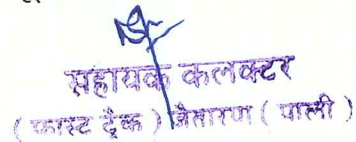 सहायक कलक्टर
( फास्ट ट्रेक ) जैतारण ( पाली )